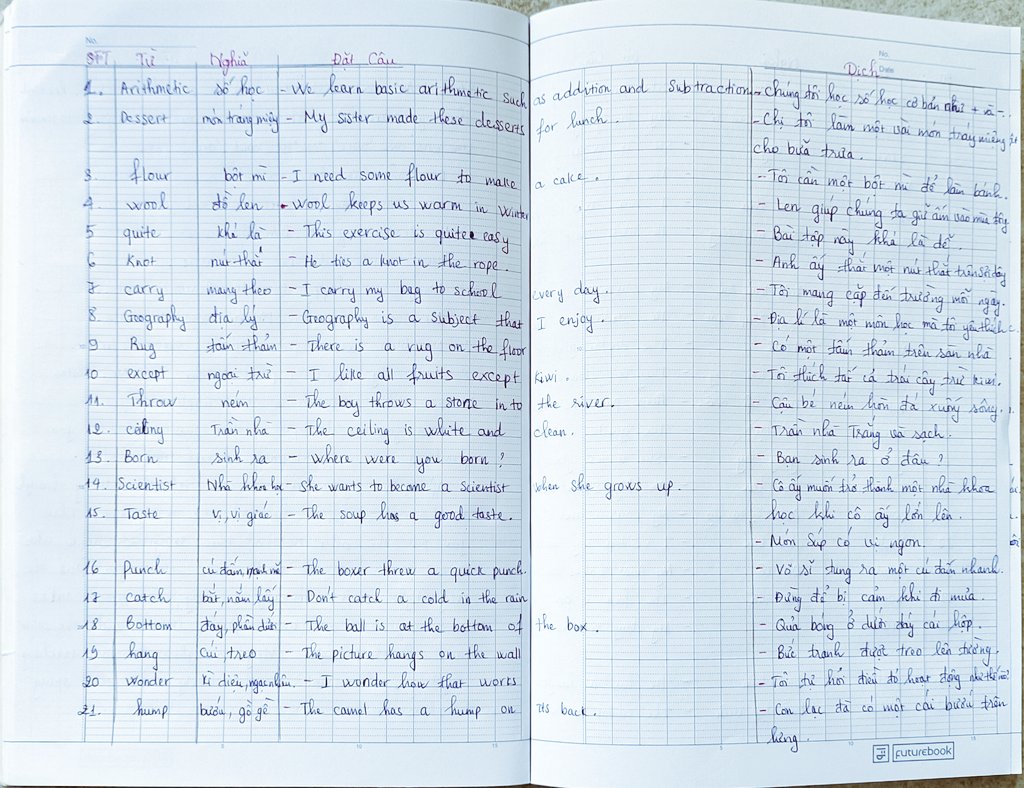 No.
No.
Date
STT Từ Nghĩa Đặt Câu Dịch
1. Arithmetic số học - We learn basic arithmetic such as addition and subtraction - Chúng tôi học số học cơ bản như + và -.
2. Dessert món tráng miệng - My sister made these desserts for lunch. - Chị tôi làm một vài món tráng miệng
cho bữa trưa.
3. flour bột mì - I need some flour to make a cake. - Tôi cần một bột mì để làm bánh.
4. wool đồ len - Wool keeps us warm in Winter - Len giúp chúng ta giữ ấm vào mùa đông
5 quite khá là - This exercise is quite easy - Bài tập này khá là dễ.
6 Knot nút thắt - He ties a knot in the rope. - Anh ấy thắt một nút thắt trên sợi dây
7 carry mang theo - I carry my bag to school every day. - Tôi mang cặp đến trường mỗi ngày.
8. Geography địa lý - Geography is a subject that I enjoy. - Địa lí là một môn học mà tôi yêu thích
9 Rug tấm thảm - There is a rug on the floor - Có một tấm thảm trên sàn nhà
10 except ngoại trừ - I like all fruits except kiwi. - Tôi thích tất cả trái cây trừ kiwi.
11. Throw ném - The boy throws a stone in to the river. - Cậu bé ném hòn đá xuống sông.
12. ceiling Trần nhà - The ceiling is white and clean. - Trần nhà Trắng và sạch.
13. Born sinh ra - Where were you born? - Bạn sinh ra ở đâu?
14. Scientist Nhà khoa học - She wants to become a scientist when she grows up. - Cô ấy muốn trở thành một nhà khoa
học khi cô ấy lớn lên.
15. Taste vị, vị giác - The soup has a good taste.
- Món Súp có vị ngon.
16 Punch cú đấm, - The boxer threw a quick punch. - Võ sĩ tung ra một cú đấm nhanh.
17 catch bắt, nắm lấy - Don't catch a cold in the rain - Đừng để bị cảm khi đi mưa.
18 Bottom đáy, phần dưới - The ball is at the bottom of the box. - Quả bóng ở dưới đáy cái hộp.
19 hang cúi, treo - The picture hangs on the wall - Bức tranh được treo lên tường.
20 wonder kì diệu, ngạc nhiên. - I wonder how that works - Tôi tự hỏi điều đó hoạt động như thế nào?
21. hump bướu, gồ ghề - The camel has a hump on its back. - Con lạc đà có một cái bướu trên
lưng.
5 10 15
5 10 15
FUTUREBOOK